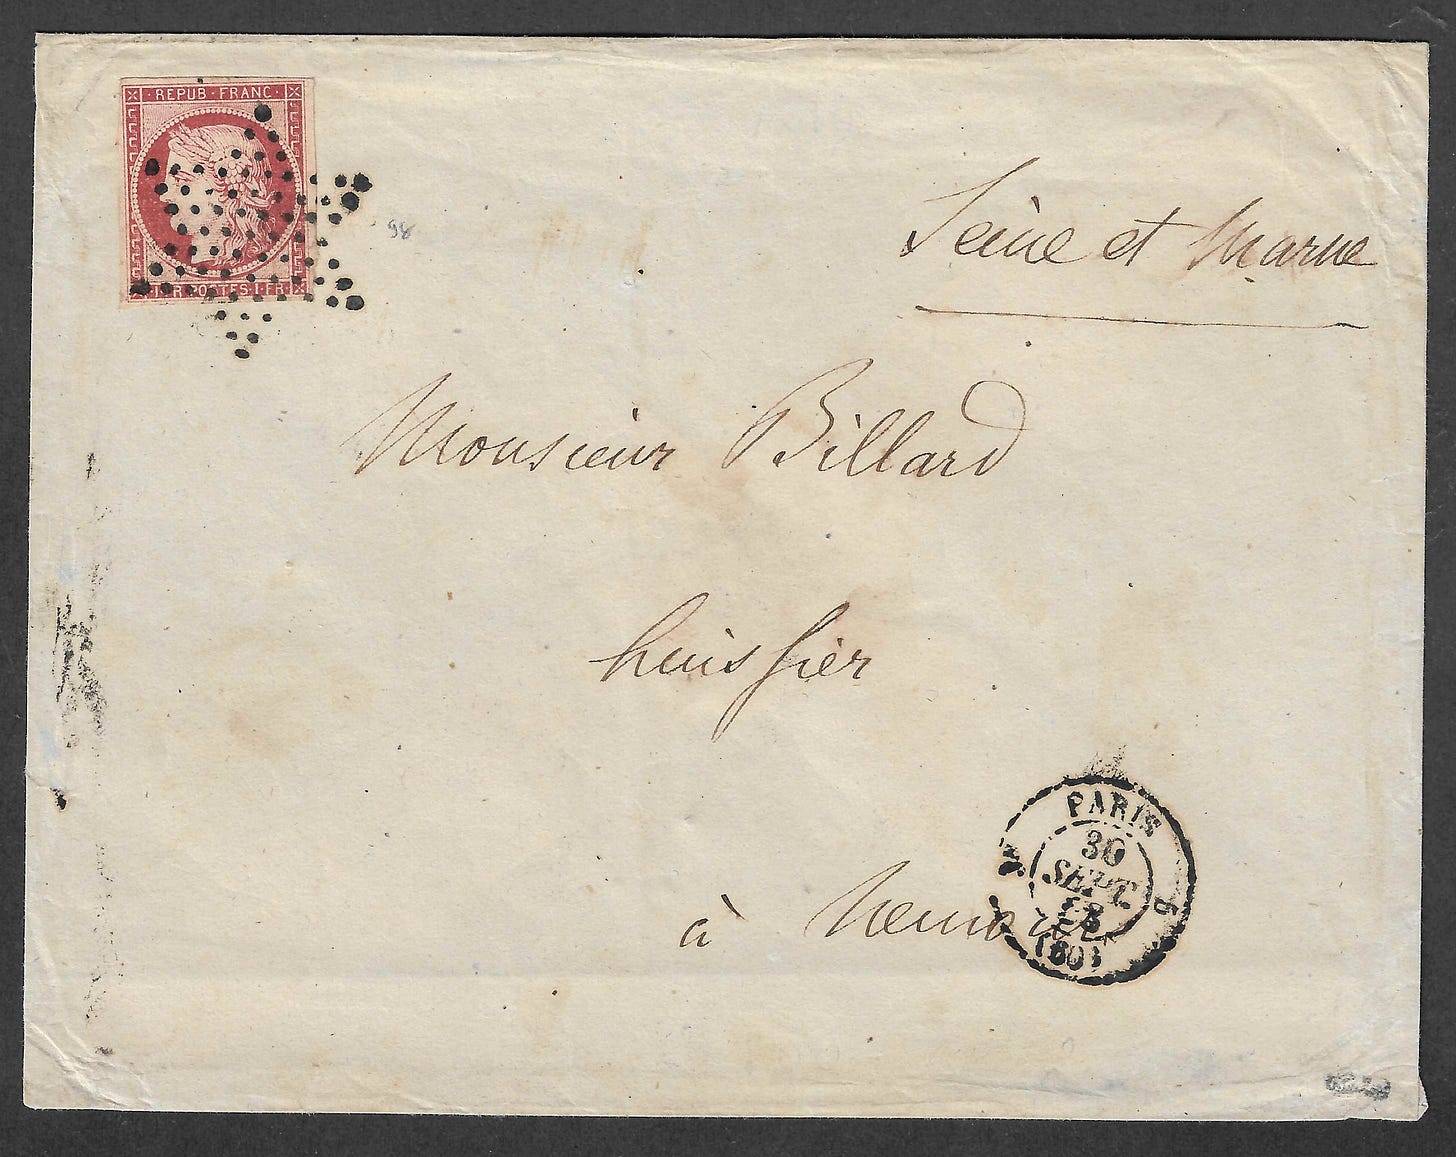 REPUB·FRANC·
POSTES·1·FR·
98
Seine et Marne
Monsieur Billard
huissier
à
PARIS
30
SEPT.
(60)